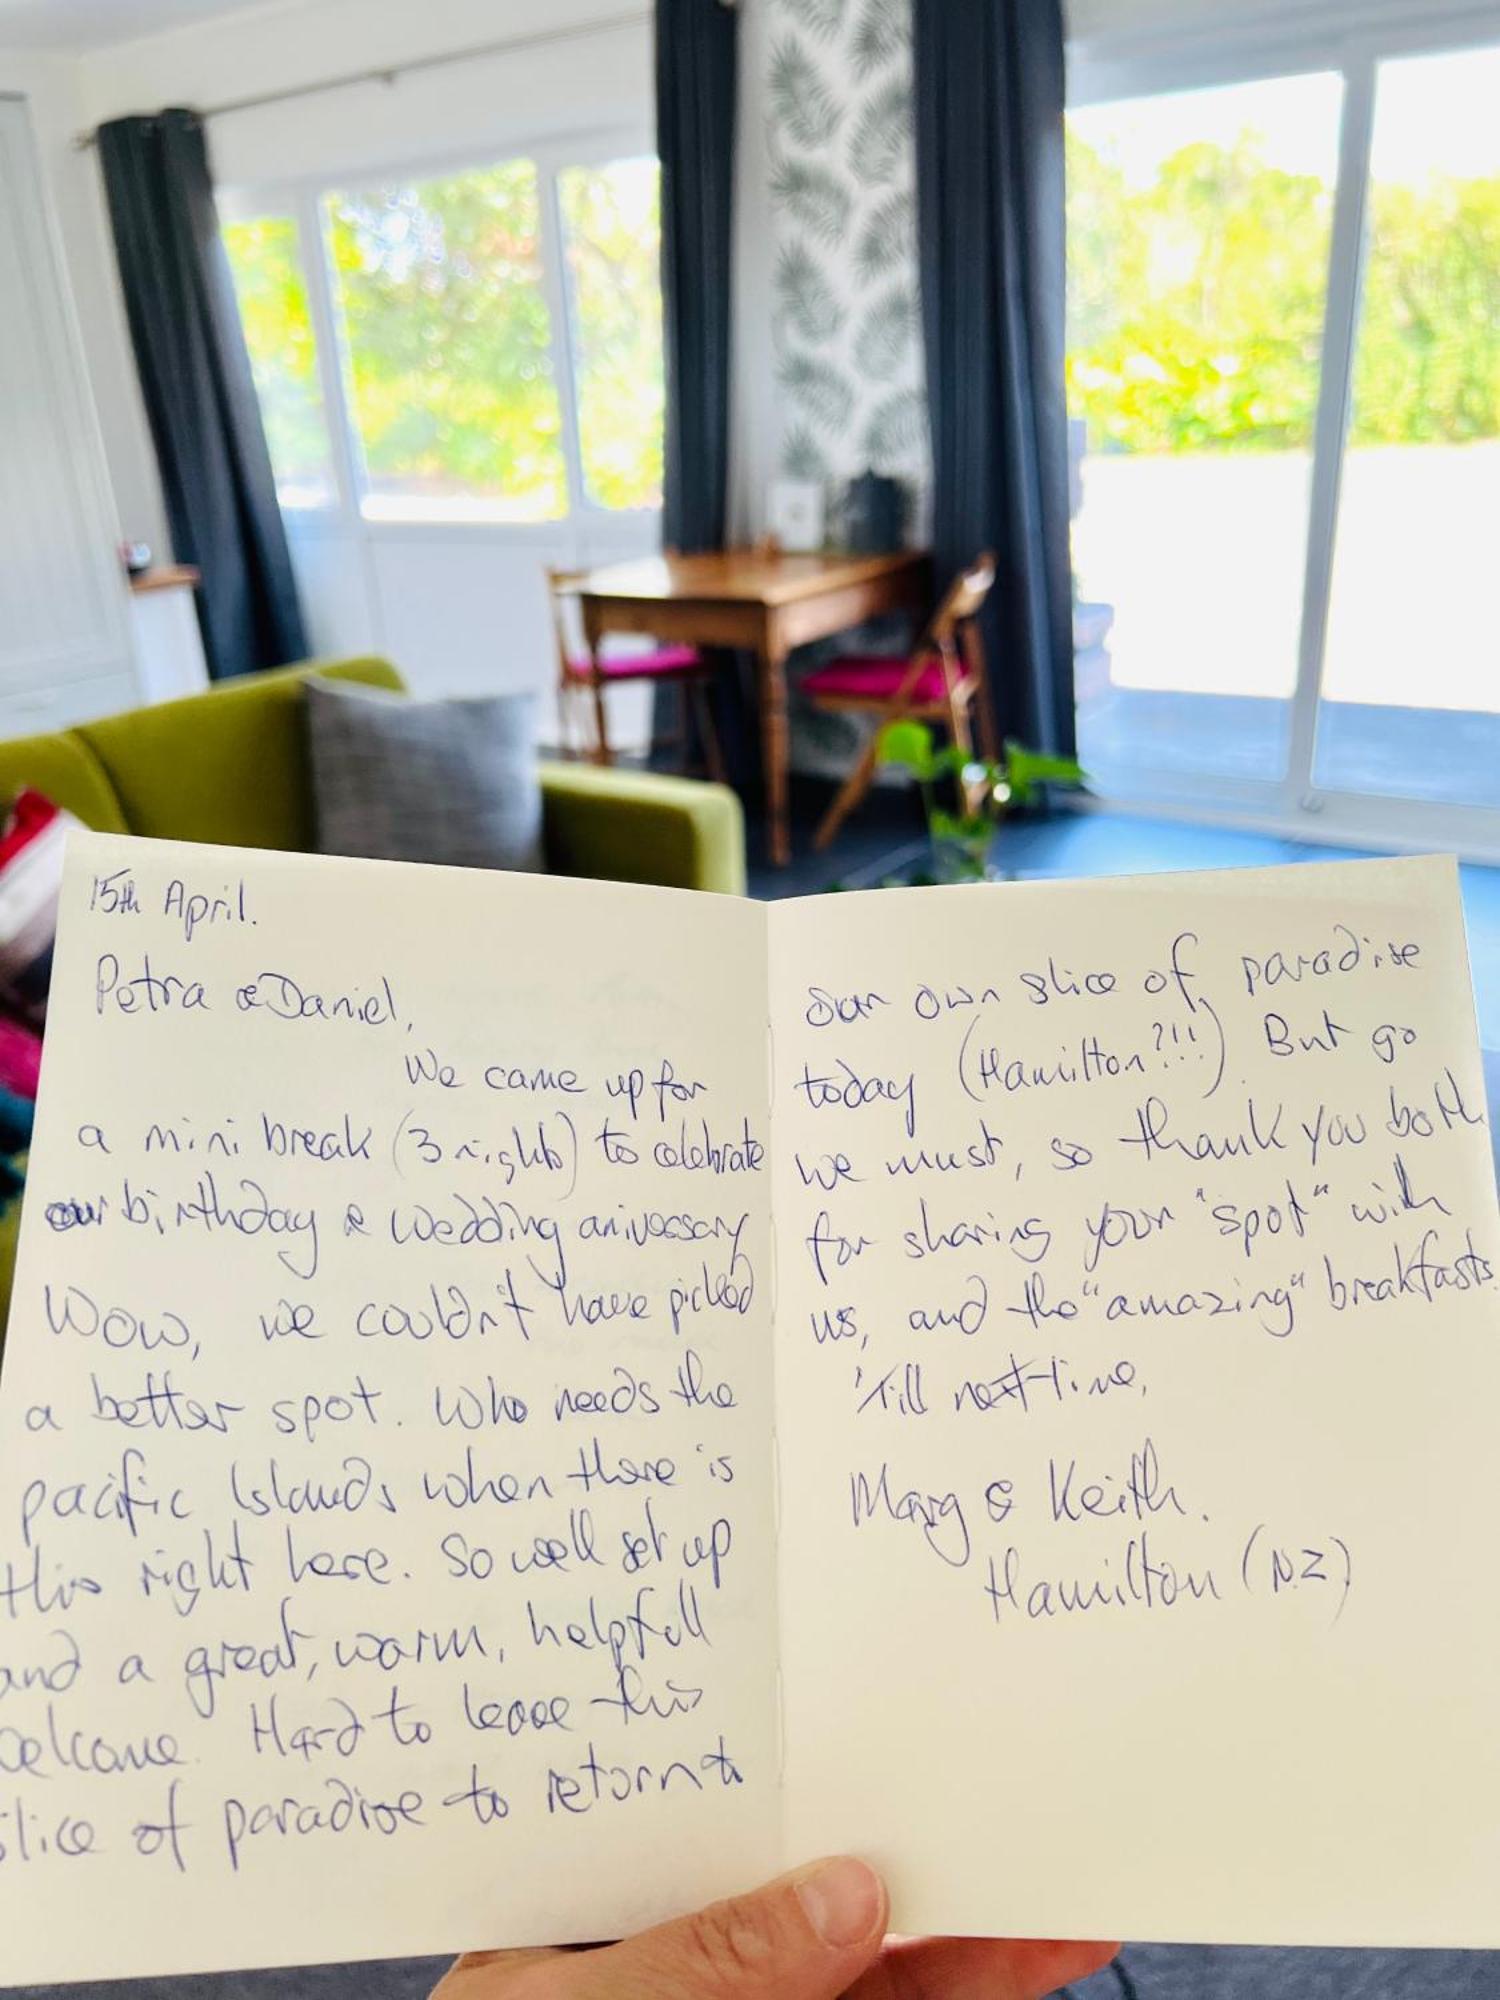 15th April.
Petra & Daniel,
We came up for
a mini break (3 nights) to celebrate
our birthday & wedding aniverssary
Wow, we couldn't have picked
a better spot. Who needs the
pacific Islands when there is
this right here. So well set up
and a great, warm, helpfull
welcome. Hard to leave this
slice of paradise to return to
our own slice of paradise
today (Hamilton?!!!). But go
we must, so thank you both
for sharing your "spot" with
us, and the "amazing" breakfasts.
'Till next time,
Marg & Keith.
Hamilton (NZ)